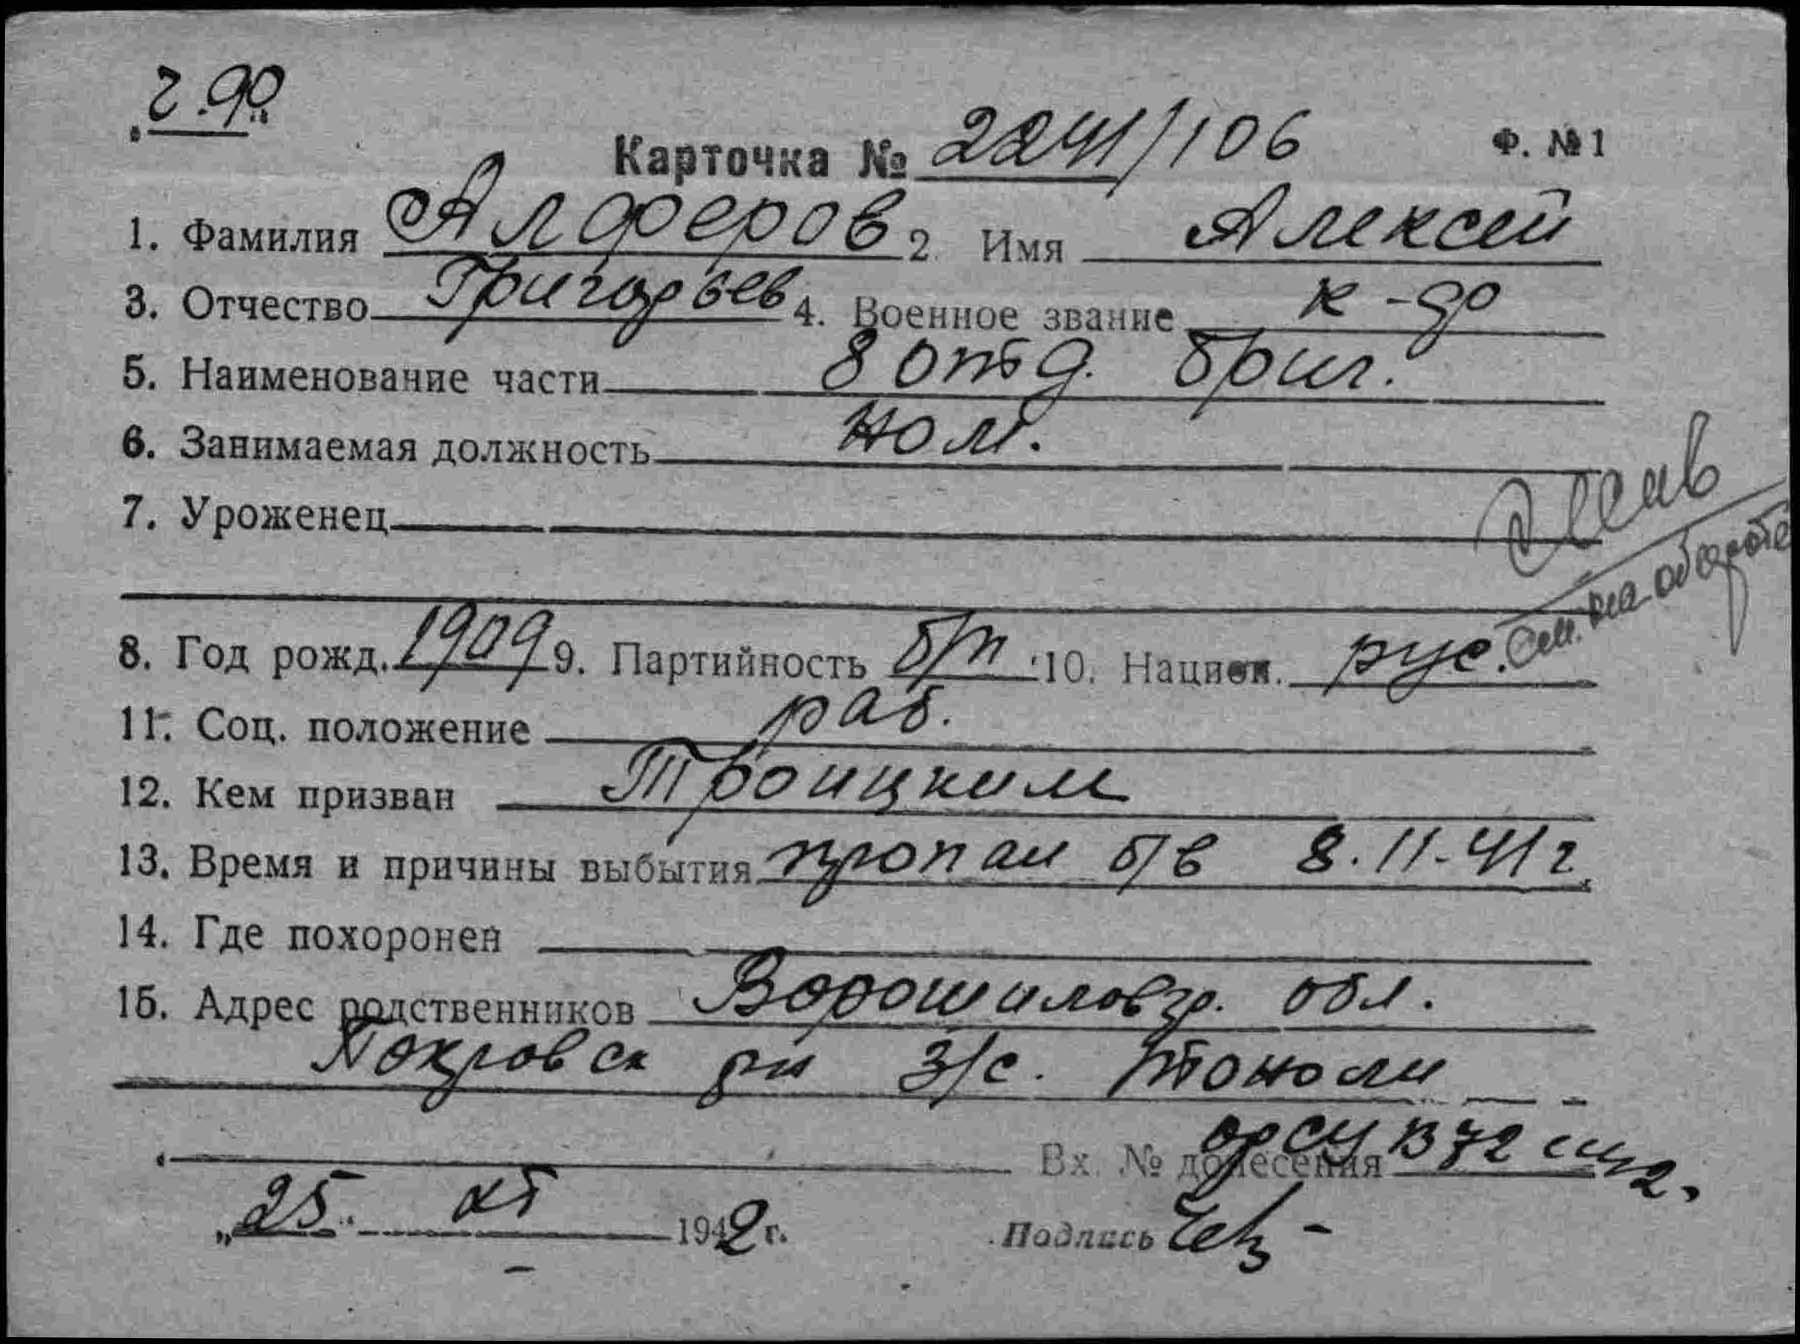 Карточка № 2241/106 Ф. № 1
1. Фамилия Алферов 2. Имя Алексей
3. Отчество Григорьев 4. Военное звание к-др
5. Наименование части 8 отд. бриг.
6. Занимаемая должность пом.
7. Уроженец
см. на обороте
8. Год рожд. 1909 9. Партийность б/п 10. Национ. рус.
11. Соц. положение раб.
12. Кем призван Троицким
13. Время и причины выбытия пропал б/в 8.11.41 г.
14. Где похоронен
15. Адрес родственников Ворошиловгр. обл.
Покровск рн з/с.
Вх. № донесения
„25" 1942 г. Подпись